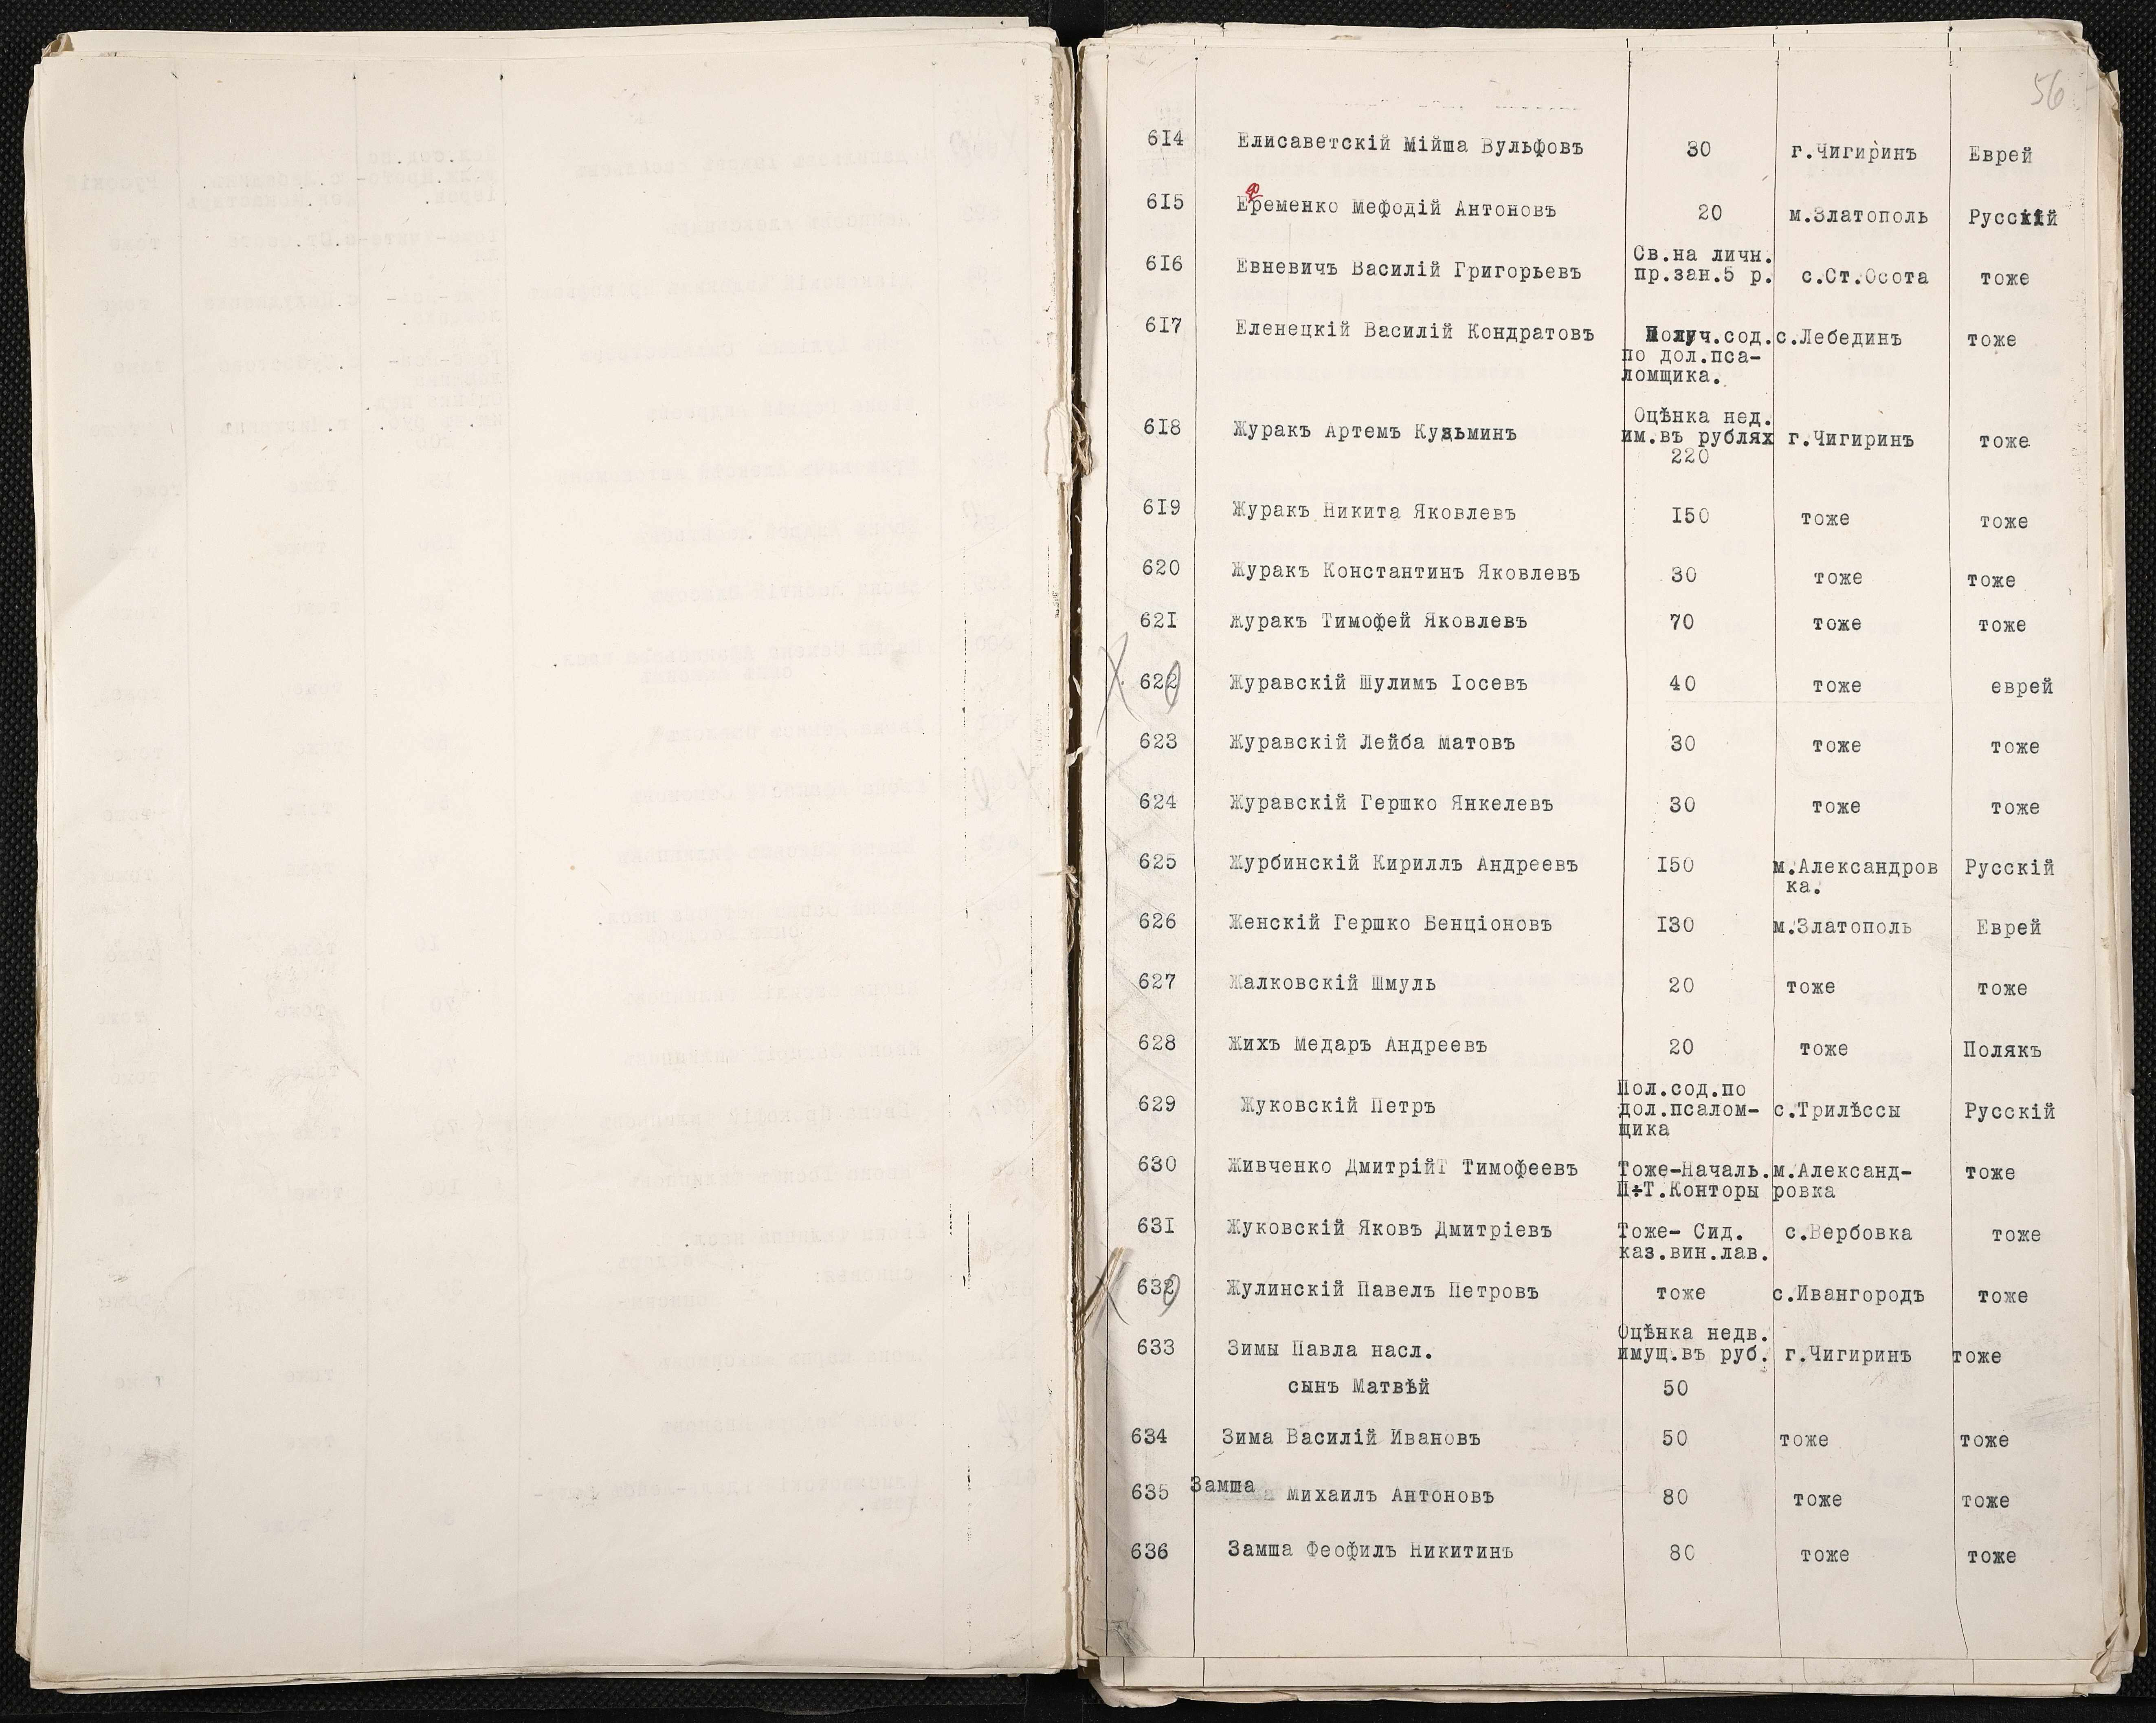 56
614 Елисаветскій Мійша Вульфовъ 30 г.Чигиринъ Еврей
615 Еременко Мефодій Антоновъ 20 м.Златополь Русскій
Св.на личн.
616 Евневичъ Василій Григорьевъ пр.зан.5 р. с.Ст.Осота тоже
617 Еленецкій Василій Кондратовъ Получ.сод. с.Лебединъ тоже
по дол.пса-
ломщика.
Оцѣнка нед.
618 Журакъ Артемъ Кузьминъ им.въ рублях г.Чигиринъ тоже
220
619 Журакъ Никита Яковлевъ I50 тоже тоже
620 Журакъ Константинъ Яковлевъ 30 тоже тоже
62I Журакъ Тимофей Яковлевъ 70 тоже тоже
622 Журавскій Шулимъ Іосевъ 40 тоже еврей
623 Журавскій Лейба Матовъ 30 тоже тоже
624 Журавскій Гершко Янкелевъ 30 тоже тоже
625 Журбинскій Кириллъ Андреевъ I50 м.Александров Русскій
ка.
626 Женскій Гершко Бенціоновъ I30 м.Златополь Еврей
627 Жалковскій Шмуль 20 тоже тоже
628 Жихъ Медаръ Андреевъ 20 тоже Полякъ
Пол.сод.по
629 Жуковскій Петръ дол.псалом- с.Трилѣссы Русскій
щика
630 Живченко ДмитрійТ Тимофеевъ Тоже-Началь. м.Александ- тоже
П÷Т.Конторы ровка
63I Жуковскій Яковъ Дмитріевъ Тоже- Сид. с.Вербовка тоже
каз.вин.лав.
632 Жулинскій Павелъ Петровъ тоже с.Ивангородъ тоже
Оцѣнка недв.
633 Зимы Павла насл. имущ.въ руб. г.Чигиринъ тоже
сынъ Матвѣй 50
634 Зима Василій Ивановъ 50 тоже тоже
635 Замша Михаилъ Антоновъ 80 тоже тоже
636 Замша Феофилъ Никитинъ 80 тоже тоже